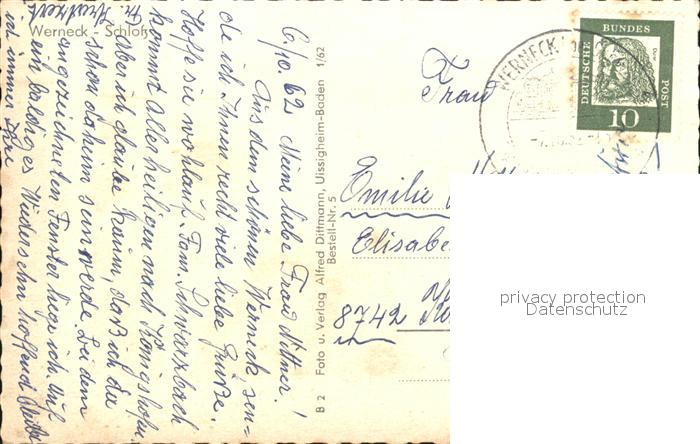 Werneck - Schloß
6./10. 62 Meine liebe Frau Nittner!
Aus dem schönen Werneck, sen-
de ich Ihnen recht viele liebe Grüße.
Hoffe sie wohlauf. Fam. Schwarzbach
kommt Allerheiligen nach Königshofen
Aber ich glaube kaum, daß ich da
schon daheim sein werde. Bei dem
angezeichneten Fenster liege ich. Auf
ein baldiges Wiedersehn hoffend
ist immer Ihre
B 2 Foto u. Verlag Alfred Dittmann, Uissigheim-Baden 1/62
Bestell-Nr. 5
WERNECK
DEUTSCHE
BUNDES
POST
10
Frau
Emilie
Elisabe
8742
privacy protection
Datenschutz